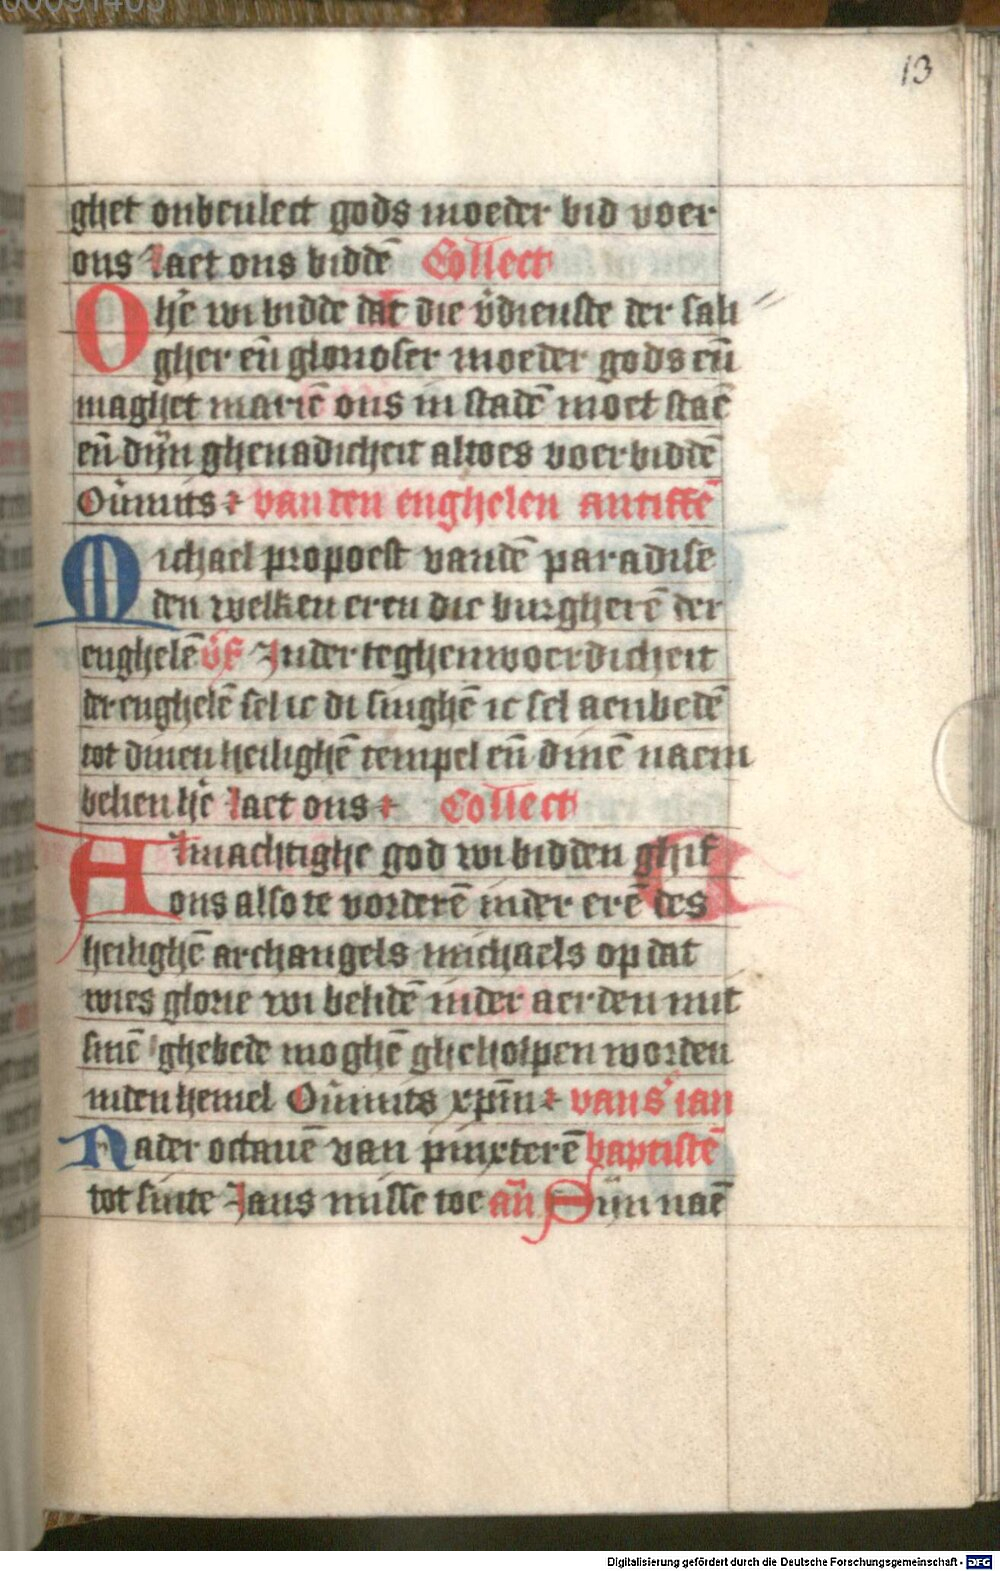 13
ghet onbeulect gods moeder bid voer
ons laet ons biddē Collect
O hē wi bidde dat die v̄dienste der sali
gher eñ glorioser moeder gods eñ
maghet mariē ons in stadē moet staē
eñ dijn ghenadicheit altoes voerbiddē
Oūmits van den enghelen antiffē
Michael propoest vandē paradise
den welken eren die burgherē der
enghelē v̄s In der teghenwoerdicheit
der enghelē sel ic di singhē ic sel aenbedē
tot dinen heilighē tempel eñ dinē naem
belien hē laet ons Collect
Almachtighe god wi bidden ghif
ons also te vorderē in der erē des
heilighē archangels michaels op dat
wies glorie wi belidē in der aerden mit
sinē ghebede moghē gheholpen worden
in den hemel Oūmits xp̄m van s' ian
Na der octauē van pinxterē baptistē
tot sinte Jans misse toe añ Sijn naē
Digitalisierung gefördert durch die Deutsche Forschungsgemeinschaft - DFG